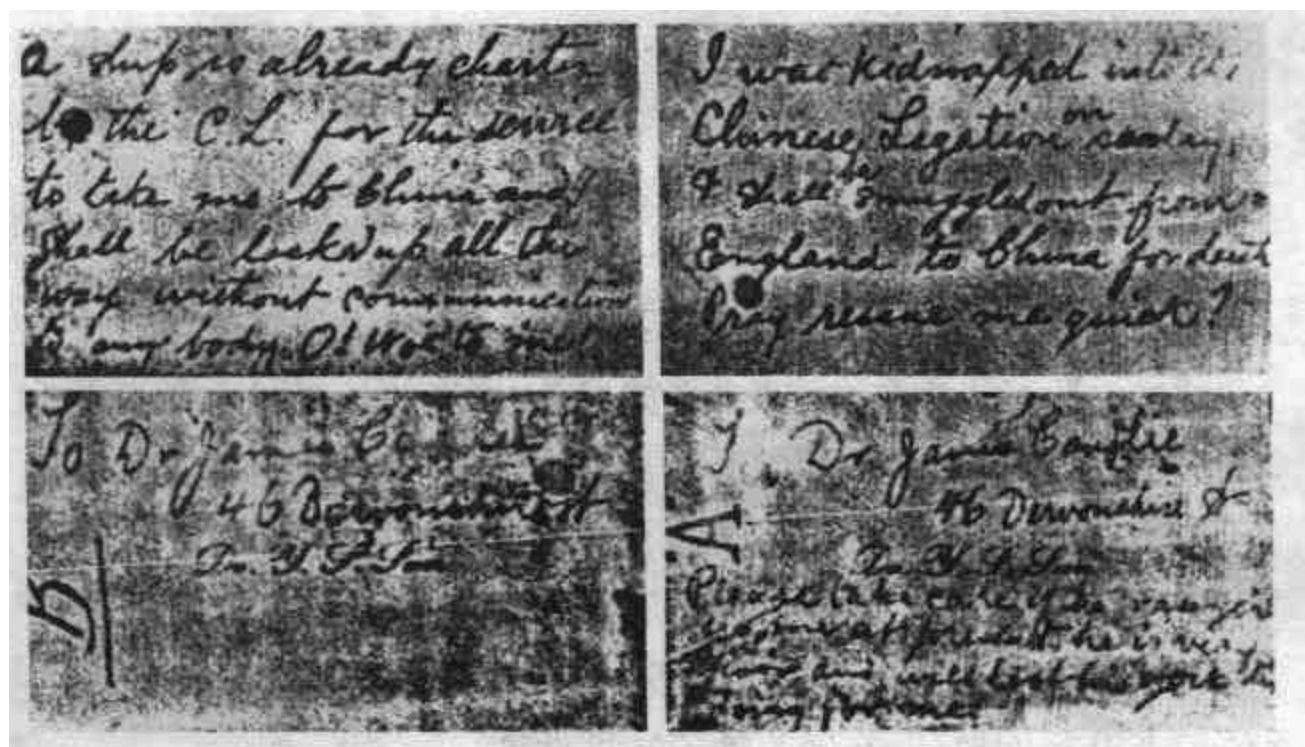 A ship is already charter
to the C.L. for the service
to take me to China and I
shall be locked up all the
way without communication
to any body. O! Woe to me!
I was kidnapped into the
Chinese Legation on sunday,
& shall be smuggled out from
England to China for death
Pray rescue me quick?
To Dr James Cantlie
46 Devonshire St
B
To Dr James Cantlie
46 Devonshire St
A
Please take care of the messenger
for me at present he is very
poor and will lost his work by
doing for me.